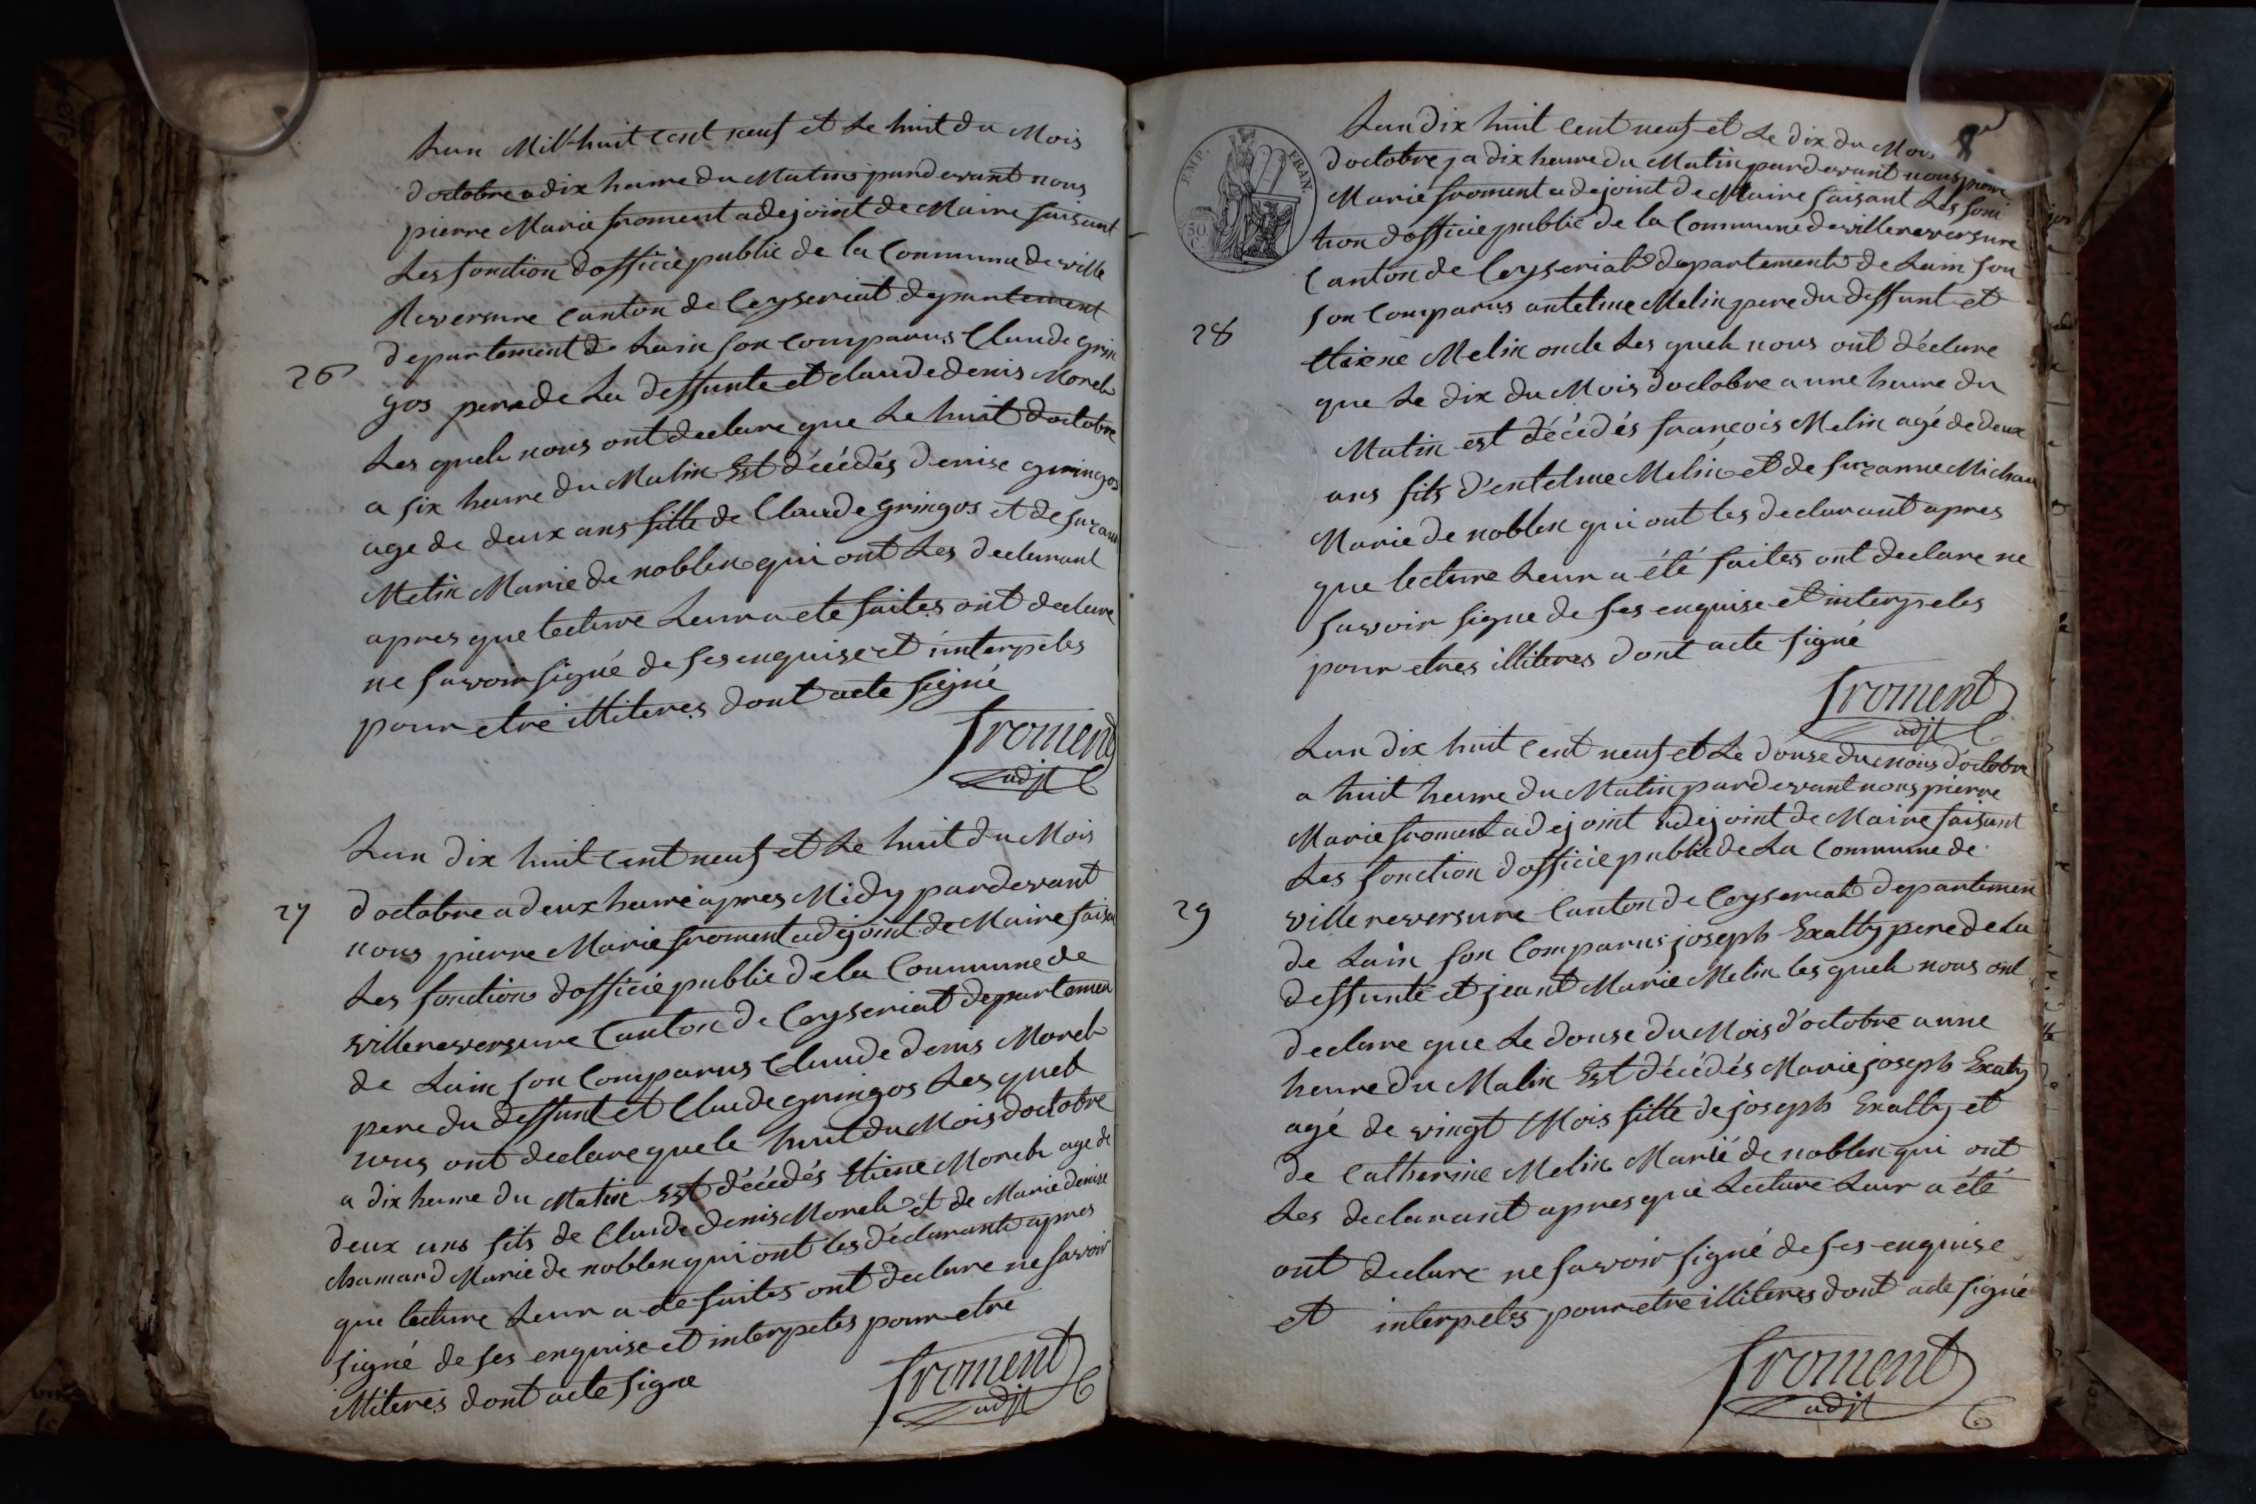 Lan Mil huit cent neuf et Le huit du Mois
doctobre a dix heure du Matins pardevant nous
pierre Marie froment adejoint de Maire faisant
Les fonction dofficié public de la Commune de ville
Reversure canton de Ceyseriat departement
departement de Lain son comparus Claude grin
26
gos pere de La deffunte et claude denis Morel
Les quels nous ont declare que Le huit doctobre
a six heure du Matin Est décédés denise gringos
age de deux ans fille de Claude gringos et de suzane
Melin Marie de noblen qui ont Les declarant
apres que lecture Leur a ete faites ont declare
ne savoir signé de ses enquise et interpeles
pour etre illiteres dont acte signé
froment
adjt
Lan dix huit cent neuf et Le huit du Mois
27
doctobre a deux heure apres Midy pardevant
nous pierre Marie froment adejoint de Maire faisa
Les fonction dofficié public de la Commune de
villereversure Canton de Ceyseriat departemen
de Lain son Comparus Claude denis Morel
pere du deffunt et Claude gringos Les quel
nous ont declare que le huit du Mois doctobre
a dix heure du Matin Est décédés Etiene Morel age de
deux ans fils de Claude denis Morel et de Marie denise
chamand Marie de noblen qui ont les déclarant apres
que lecture Leur a ete faites ont declare ne savoir
signé de ses enquise et interpeles pour etre
illiteres dont acte signe
froment
adjt
8
EMP. FRAN.
50
C.
Lan dix huit cent neuf et Le dix du Mois
doctobre, a dix heure du Matin pardevant nous pierre
Marie froment adejoint de Maire faisant Les fonc
tion dofficié public de la Commune de villereversure
Canton de Ceyseriat departement de Lain son
28
son Comparus antelme Melin pere du deffunt et
Etiene Melin oncle Les quels nous ont déclare
que Le dix du Mois doctobre a une heure du
Matin est décédés francois Melin agé de deux
ans fils d'entelme Melin et de suzanne Michau
Marie de noblen qui ont les declarant apres
que lecture Leur a été faites ont declare ne
savoir signe de ses enquise et interpeles
pour etres illiteres dont acte signé
froment
adjt
Lan dix huit cent neuf et Le douse du mois d'octobre
a huit heure du Matin pardevant nous pierre
Marie froment adejoint adejoint de Maire faisant
Les fonction dofficié public de La Commune de
29
villereversure Canton de Ceyseriat departemen
de Lain son Comparus joseph Exalty pere de La
deffunte et jeant Marie Melin les quels nous ont
declare que Le douse du Mois d'octobre a une
heure du Matin Est décédés Marie joseph Exalty
agé de vingt Mois fille de joseph Exalty et
de Catherine Melin Marié de noblen qui ont
Les declarant apres que Lecture Leur a été
ont declare ne savoir signé de ses enquise
et interpeles pour etre illiteres dont acte signé
froment
adjt